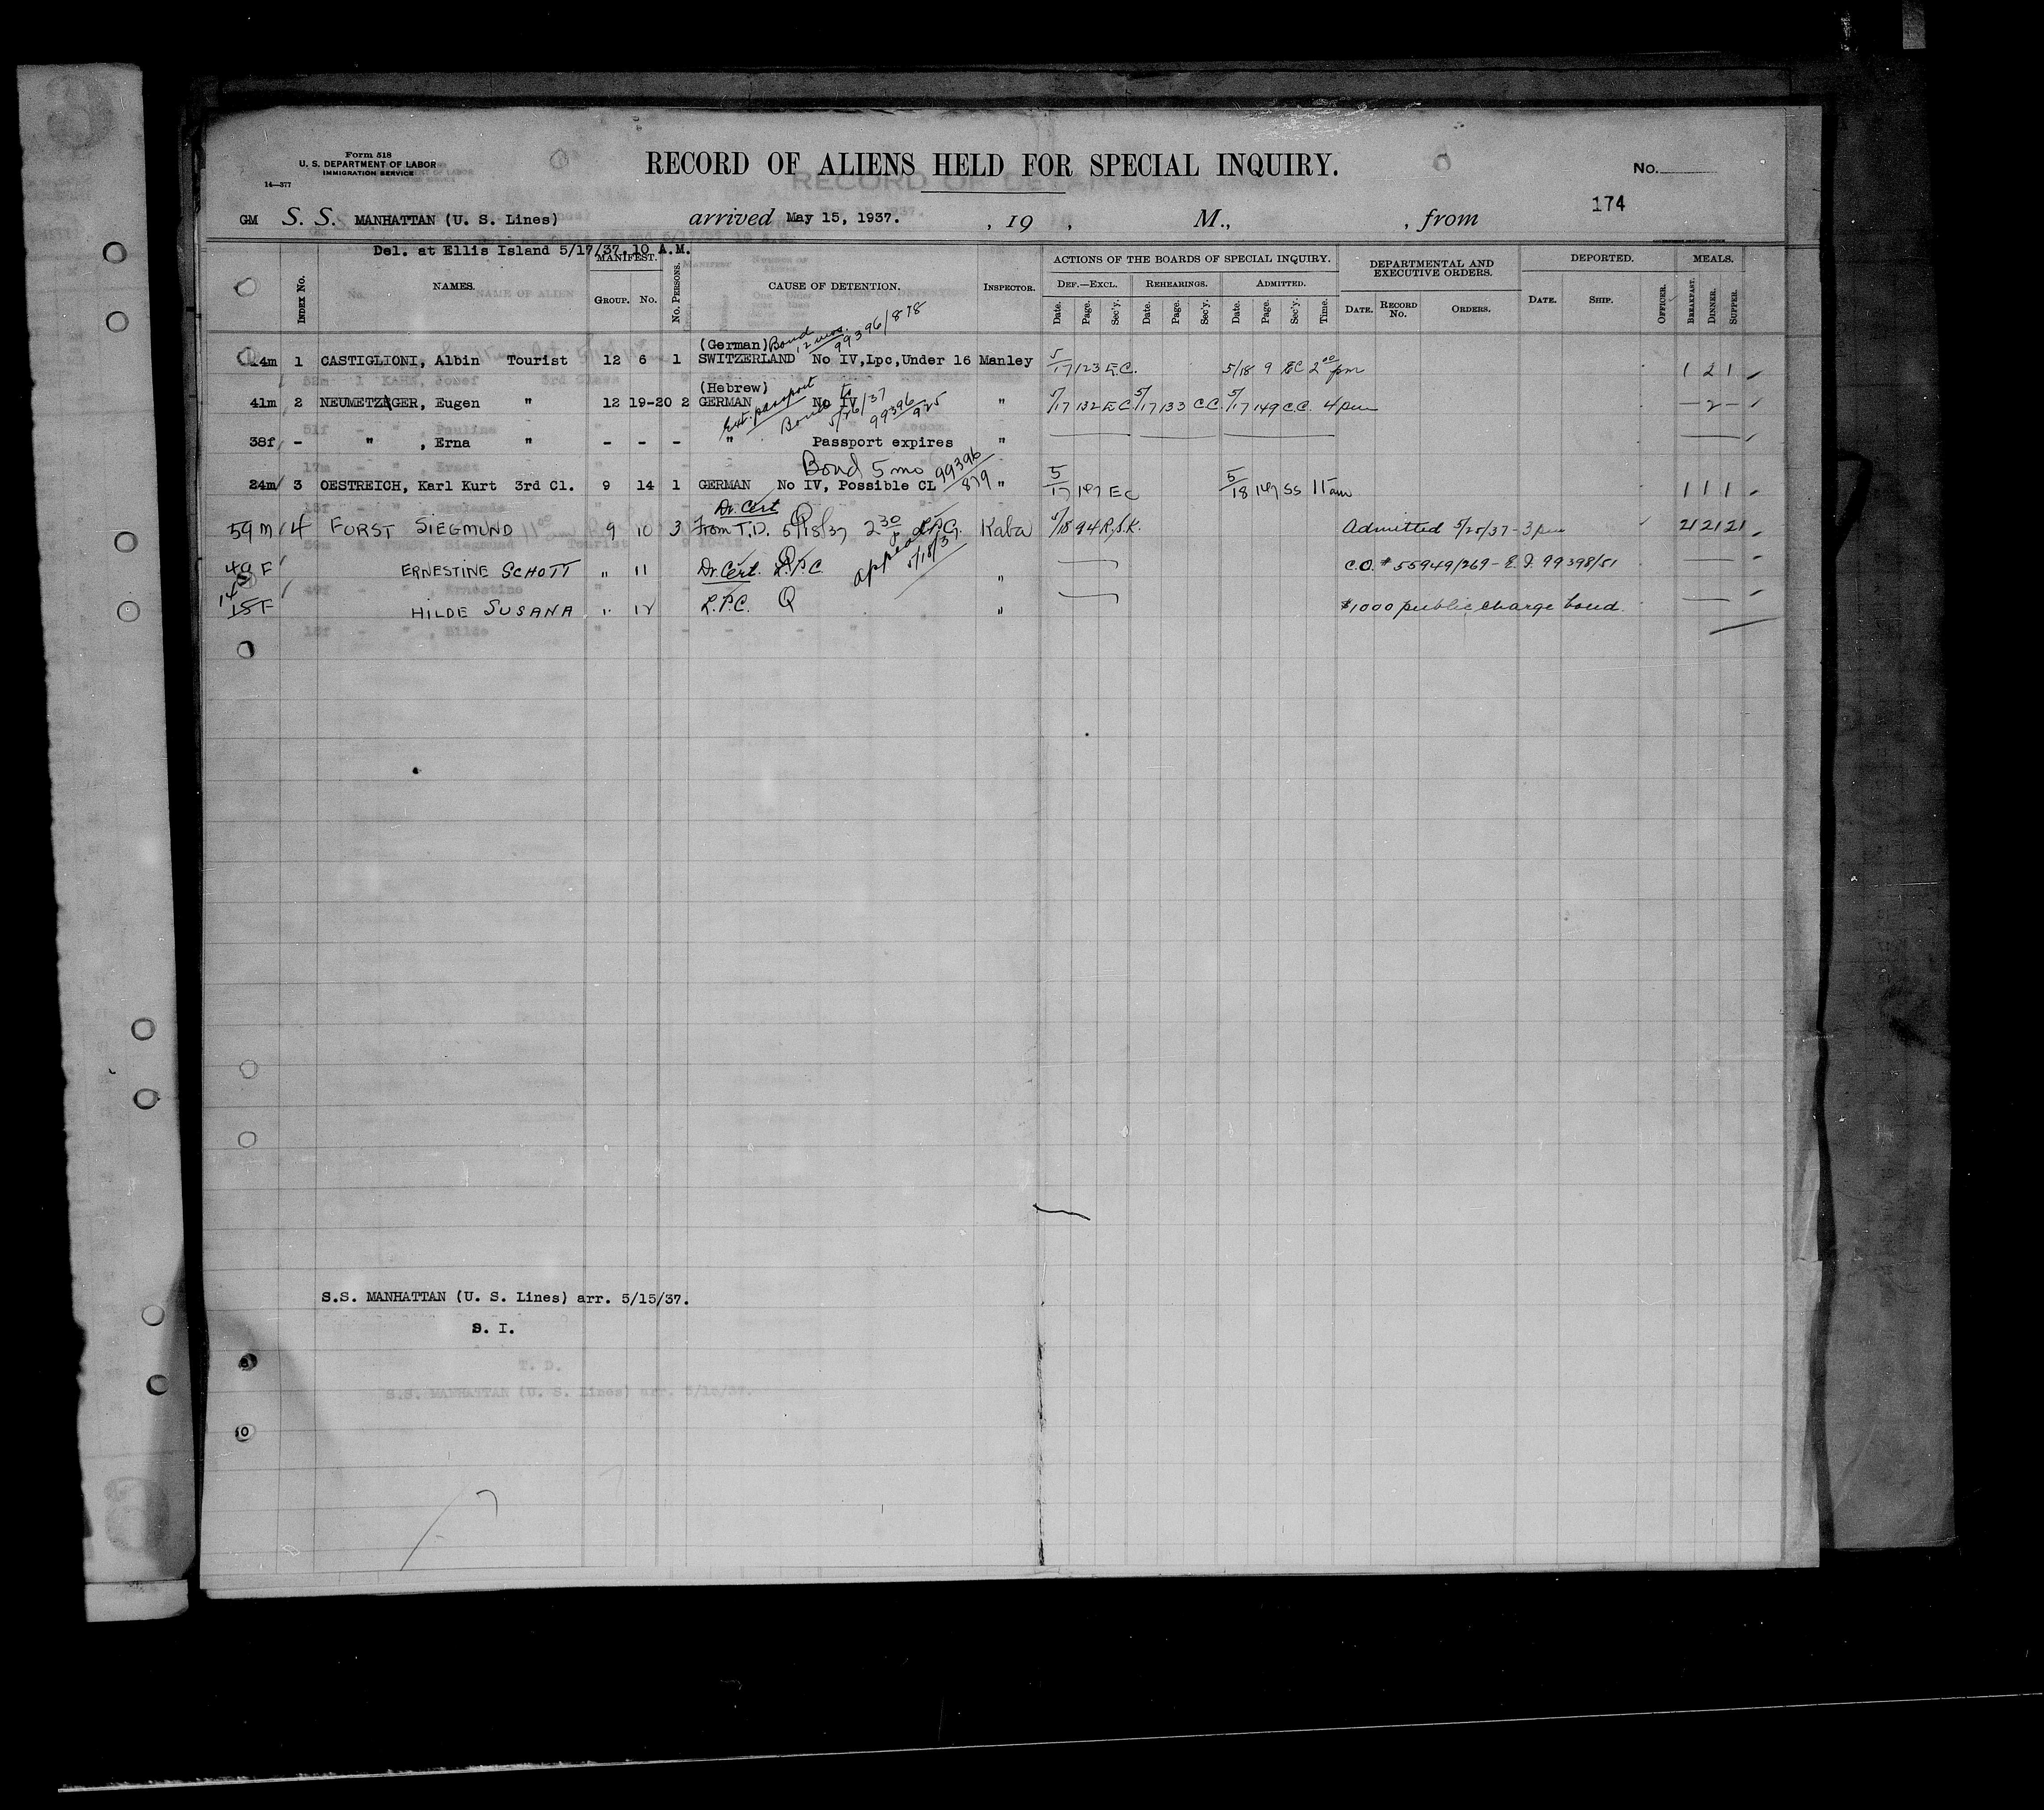 Form 518
U. S. DEPARTMENT OF LABOR
IMMIGRATION SERVICE
14—377
RECORD OF ALIENS HELD FOR SPECIAL INQUIRY.
No.
174
GM S. S. MANHATTAN (U. S. Lines) arrived May 15, 1937. , 19 , M., , from
Del. at Ellis Island 5/17/37, 10 A.M.
INDEX No. NAMES. MANIFEST. GROUP. No. No. PERSONS. CAUSE OF DETENTION. INSPECTOR. ACTIONS OF THE BOARDS OF SPECIAL INQUIRY. DEF.—EXCL. Date. Page. Sec'y. REHEARINGS. Date. Page. Sec'y. ADMITTED. Date. Page. Sec'y. Time. DEPARTMENTAL AND EXECUTIVE ORDERS. DATE. RECORD No. ORDERS. DEPORTED. DATE. SHIP. OFFICER. MEALS. BREAKFAST. DINNER. SUPPER.
(German) Bond 12 mos. 99396/878
14m 1 CASTIGLIONI, Albin Tourist 12 6 1 SWITZERLAND No IV, Lpc, Under 16 Manley 5/17 123 E.C. 5/18 9 EC 2 00 pm 1 2 1
(Hebrew)
41m 2 NEUMETZGER, Eugen " 12 19-20 2 GERMAN No IV " 5/17 132 EC 5/17 133 C.C. 5/17 149 C.C. 4 pm — 2 —
Ext. passport Bond to 5/26/37 99396/925
38f - " , Erna " - - - " Passport expires "
Bond 5 mo 99396/879
24m 3 OESTREICH, Karl Kurt 3rd Cl. 9 14 1 GERMAN No IV, Possible CL " 5/17 147 EC 5/18 147 SS 11 am 1 1 1
Dr. Cert
59 m 4 FORST SIEGMUND 9 10 3 From T.D. 5/18/37 2 30 L.P.C. Kaba 5/18 94 R.S.K. Admitted 5/25/37 - 3 pm 21 21 21
appealed 5/18/37
49 F ERNESTINE SCHOTT " 11 Dr. Cert. L.P.C. " C.O. # 55949/269 - E.I. 99398/51
14
15 F HILDE SUSANA " 12 L.P.C. " $1000 public charge bond
S.S. MANHATTAN (U. S. Lines) arr. 5/15/37.
S. I.
T. D.
S.S. MANHATTAN (U. S. Lines) arr. 5/15/37.